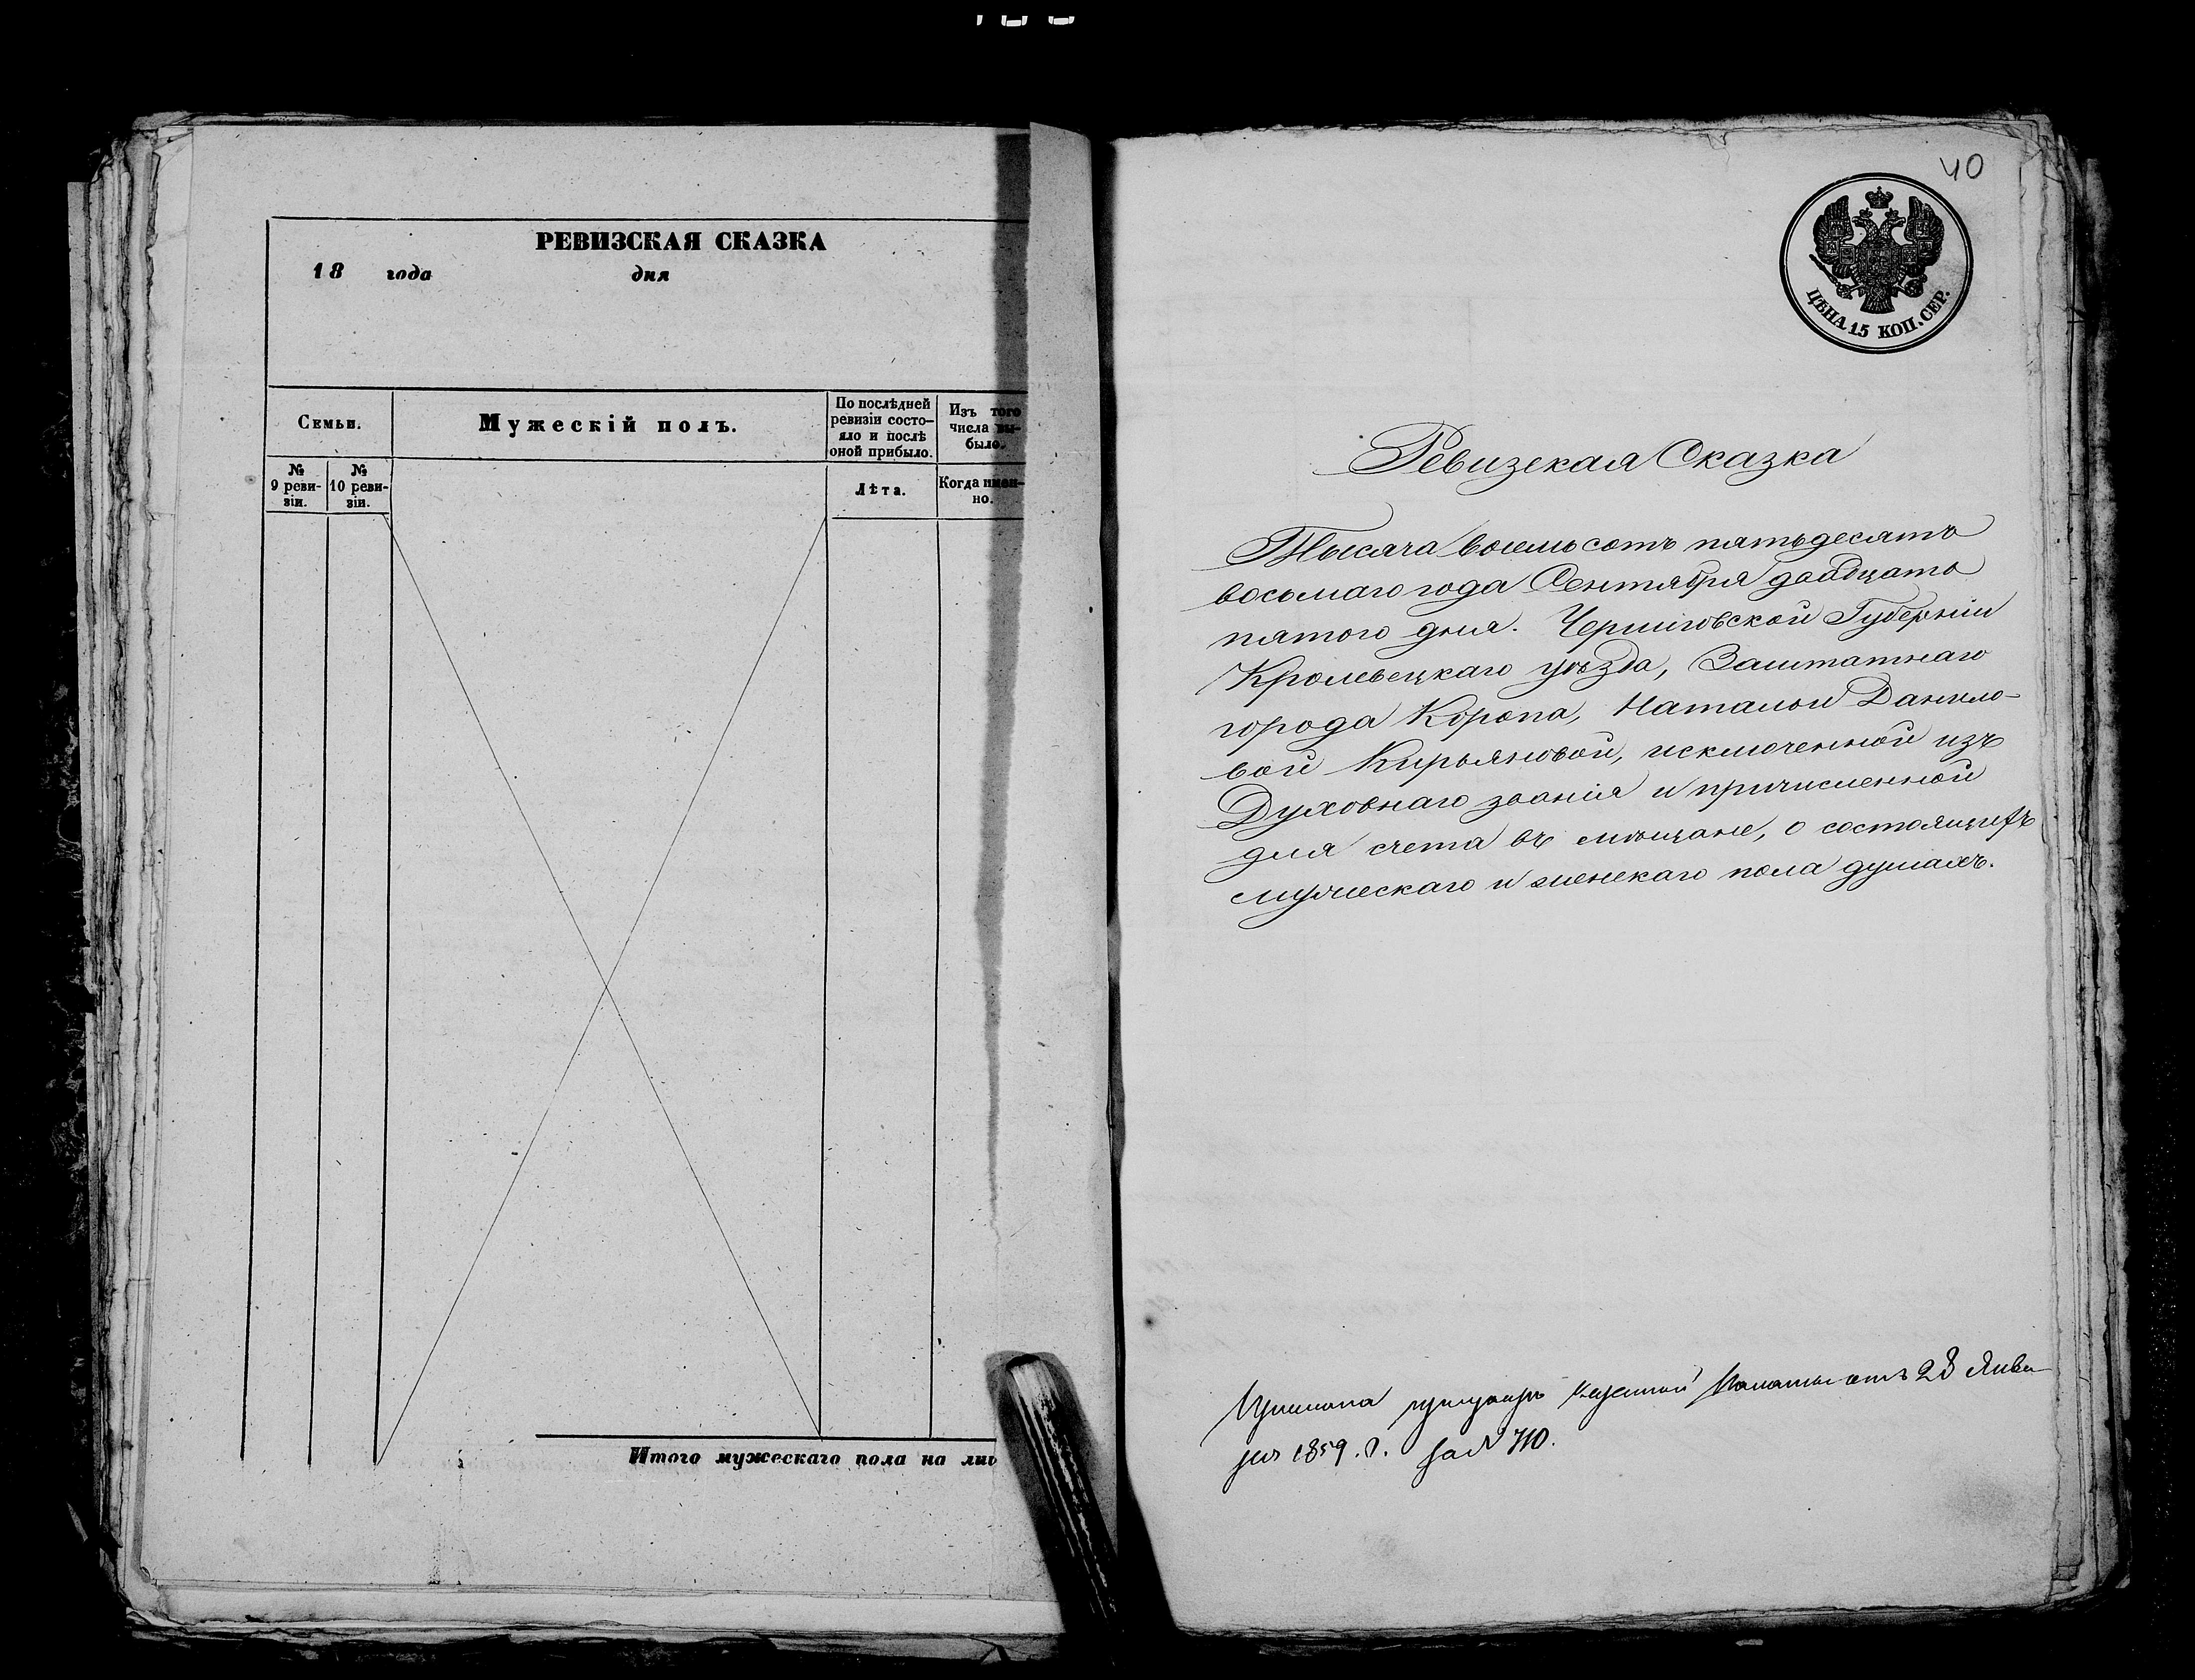 РЕВИЗСКАЯ СКАЗКА
18 года дня
Семьи.
Мужескій полъ.
По послѣдней
ревизіи состо-
яло и послѣ
оной прибыло.
Изъ того
числа вы-
было.
№
9 реви-
зіи.
№
10 реви-
зіи.
Лѣта.
Когда имен-
но.
Итого мужескаго пола на ли
40
ЦѢНА 15 КОП. СЕР.
Ревизская Сказка
Тысяча восемьсотъ пятьдесятъ
восьмаго года Сентября двадцать
пятого дня. Черниговской Губерніи
Кролевецкаго уѣзда, Заштатнаго
города Коропа, Натальи Данило-
вой Кирьяновой, исключенной изъ
Духовнаго званія и причисленной
для счета въ мѣщане, о состоящихъ
мужескаго и женскаго пола душахъ.
казенной Палаты отъ 28 Янва
ря 1859. г. за № 710.